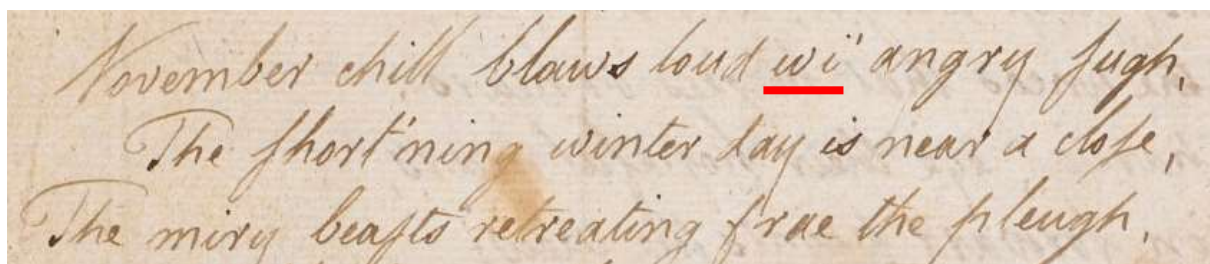 November chill blaws loud wi' angry ſugh,
The ſhort'ning winter day is near a cloſe,
The miry beaſts retreating frae the pleugh,